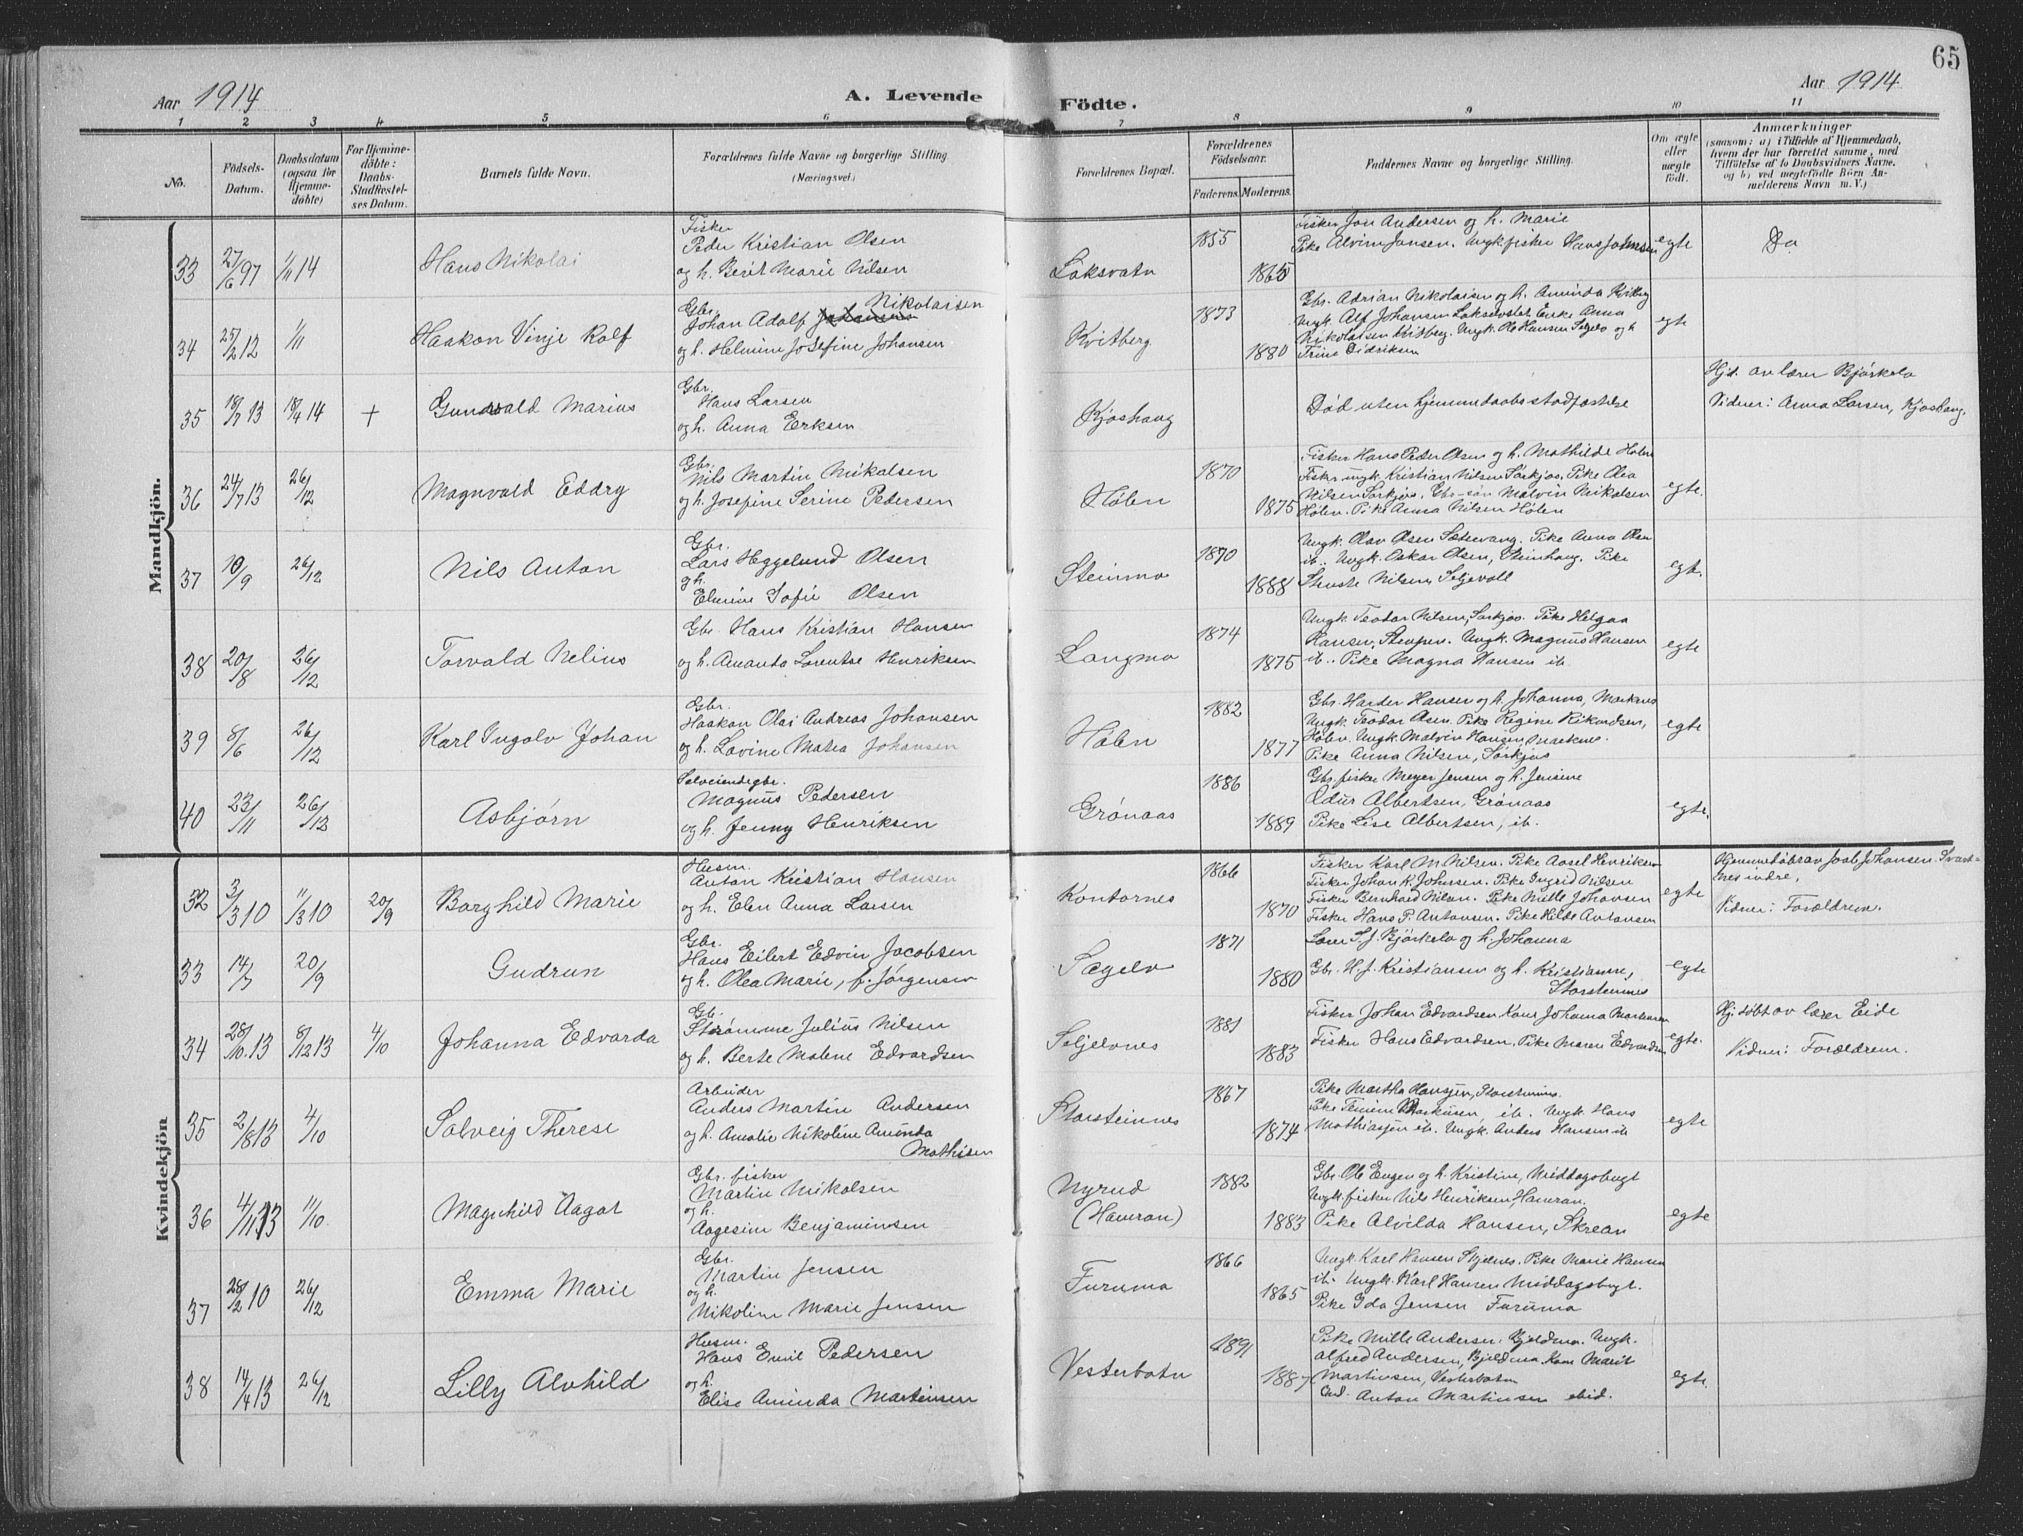 65
Aar 1914 A. Levende Födte. Aar 1914
1 2 3 4 5 6 7 8 9 10 11
No.
Födsels-Datum.
Daabsdatum (ogsaa for Hjemme-döbte)
For Hjemme-döbte: Daabs-Stadfæstel-ses Datum.
Barnets fulde Navn.
Forældrenes fulde Navne og borgerlige Stilling. (Næringsvei.)
Forældrenes Bopæl.
Forældrenes Födselsaar.
Faderens. Moderens.
Faddernes Navne og borgerlige Stilling.
Om ægte eller uægte födt.
Anmærkninger
(saasom: a) i Tilfælde af Hjemmedaab, hvem der har forrettet samme, med Tilföielse af to Daabsvidners Navne, og b) ved uegtefödte Börn An-melderens Navn m. V.)
Mandkjön.
33 27/6 97 1/11 14 Hans Nikolai
Fisker
Peder Kristian Olsen
og h. Berit Marie Nilsen
Laksvatn 1855 1865
Fisker Jon Andersen og h. Marie
Pike Alvine Jansen. Ungk. fisker Hans Johnsen
egte
Do.
34 25/2 12 1/11 Haakon Vinje Rolf
Gbr. Nikolaisen
Johan Adolf Johansen
og h. Helmine Josefine Johansen
Kvitberg 1873 1880
Gbr. Adrian Nikolaisen og h. Aminda Kvitberg
Ungk. Alf Johansen Laksvatn. Enke Anna
Nikolaisen Kvitberg. Ungk. Ole Hansen Seljelv og h
Trine Didriksen
egte
35 18/7 13 18/4 14 + Gunvald Marius
Gbr.
Hans Larsen
og h. Anna Eriksen
Kjoshaug
Död uten hjemmedaabsstadfæstelse
Hjd. av lærer Bjørkelo
Vidner: Anna Larsen, Kjoshaug.
36 24/7 13 26/12 Magnvald Eddry
Gbr.
Nils Martin Nikalsen
og h. Josefine Serine Pedersen
Hølen 1870 1875
Fisker Hans Peder Olsen og h. Mathilde Hølen
Fisker ungk. Kristian Nilsen Sørkjos. Pike Olea
Nilsen Sørkjos. Gbr-søn Malvin Nikalsen
Hølen. Pike Anna Nilsen Hølen
egte.
37 10/9 26/12 Nils Anton
Gbr.
Lars Heggelund Olsen
og h.
Elmine Sofie Olsen
Steinmo 1870 1888
Ungk. Olav Olsen Sætervang. Pike Anna Olsen
ib. Ungk. Oskar Olsen, Steinhaug. Pike
Nilsen, Seljevoll
egte.
38 20/8 26/12 Torvald Nelius
Gbr. Hans Kristian Hansen
og h. Amanda Lorentse Henriksen
Langmo 1874 1875
Ungk. Teodor Nilsen, Sørkjos. Pike Helgaa
Hansen, Steinjen. Ungk. Magnus Hansen
ib.. Pike Magna Hansen ib.
egte
39 8/6 26/12 Karl Ingolv Johan
Gbr.
Haakon Olai Andreas Johansen
og h. Lovine Maria Johansen
Hølen 1882 1877
Gbr. Harder Hansen og h. Johanna, Markenes
Ungk. Teodor Olsen. Pike Regine Rikardsen,
Hølen. Ungk. Malvin Hansen, Markenes.
Pike Anna Nilsen, Sørkjos
egte
40 23/11 26/12 Asbjørn
Selveiendegbr.
Magnus Pedersen
og h. Jenny Henriksen
Grønaas 1886 1889
Gbr. fisker Meyer Jensen og h. Jensine
Edur Albertsen, Grønaas
Pike Lise Albertsen, ib.
egte.
Kvindekjön
32 3/3 10 11/3 10 20/9 Borghild Marie
Husm.
Anton Kristian Hansen
og h. Elen Anna Larsen
Kantornes 1866 1870
Fisker Karl M. Nilsen. Pike Aasel Henriksen
Fisker Johan K. Johansen. Pike Ingrid Nilsen
Fisker Bernhard Nilsen. Pike Mille Johansen
Fisker Hans P. Antonsen. Pike Hilde Antonsen
egte
Hjemmedøbt av Joak Johansen. Svart-
nes indre.
Vidner: Forældrene.
33 14/7 20/9 Gudrun
Gbr.
Hans Eilert Edvin Jacobsen
og h. Olea Marie, f. Jørgensen
Sagelv 1871 1880
Lærer S. J. Bjørkelo og h. Johanna
Gbr. H. J. Kristiansen og h. Kristianne,
Storsteinnes
egte
34 28/10 13 8/12 13 4/10 Johanna Edvarda
Gb.
Strømme Julius Nilsen
og h. Berte Malene Edvardsen
Seljelvnes 1881 1883
Fisker Johan Edvardsen Kone Johanna
Fisker Hans Edvardsen. Pike Maren Edvardsen
egte.
Hj. døbt av lærer Eide
Vidner: Forældrene.
35 2/8 13 4/10 Solveig Therese
Arbeider
Anders Martin Andersen
og h. Amalie Nikoline Aminda
Mathisen
Storsteinnes 1867 1874
Pike Martha Hansen, Storsteinnes.
Pike Markusen, ib. Ungk. Hans
Mathiassen ib. Ungk. Anders Hansen ib
egte
36 4/11 13 11/10. Magnhild Aagot
Gbr. fisker
Martin Nikolsen
og h.
Aagesine Benjaminsen
Nyrud
(Hamran) 1882 1883
Gbr. Ole Eugen og h. Kristine, Middagsbugt
Ungk. fisker Nils Henriksen, Hamran.
Pike Alvilda Hansen, Skrean
egte
37 28/2 10 26/12 Emma Marie
Gbr.
Martin Jensen
og h.
Nikoline Marie Jensen
Furumo 1866 1865
Ungk. Karl Hansen Seljelnes. Pike Marie Hansen
ib. Ungk. Karl Hansen Middagsbugt.
Pike Ida Jensen Furumo
38 14/4 13 26/12 Lilly Alvhild
Husm.
Hans Emil Pedersen
og h.
Elise Aminda Martinsen
Vesterbotn 1891 1887
Pike Mille Andersen. Ungk.
Alfred Andersen, Kone Marit
Martinsen, Vesterbotn
Anton Martinsen ibid.
egte.